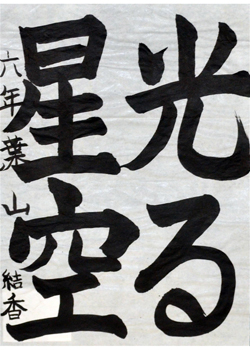 光る
星空
六年葉山結香